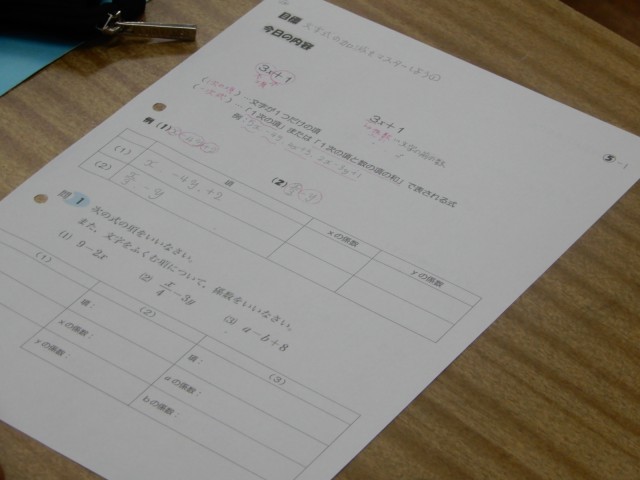 目標
今日の内容
3x+1
3x+1
(一次の項) … 文字が1つだけの項
(一次式) … 「1次の項」または「1次の項と数の項の和」で表される式
例
例 (1)
(2)
項
xの係数
yの係数
(1) x -4y +2
(2) -y
問 1 次の式の項をいいなさい。
また,文字をふくむ項について,係数をいいなさい。
(1) 9-2x
(2) x/4-3y
(3) a-b+8
(1)
(2)
(3)
項:
項:
xの係数:
aの係数:
yの係数:
bの係数:
⑤-1